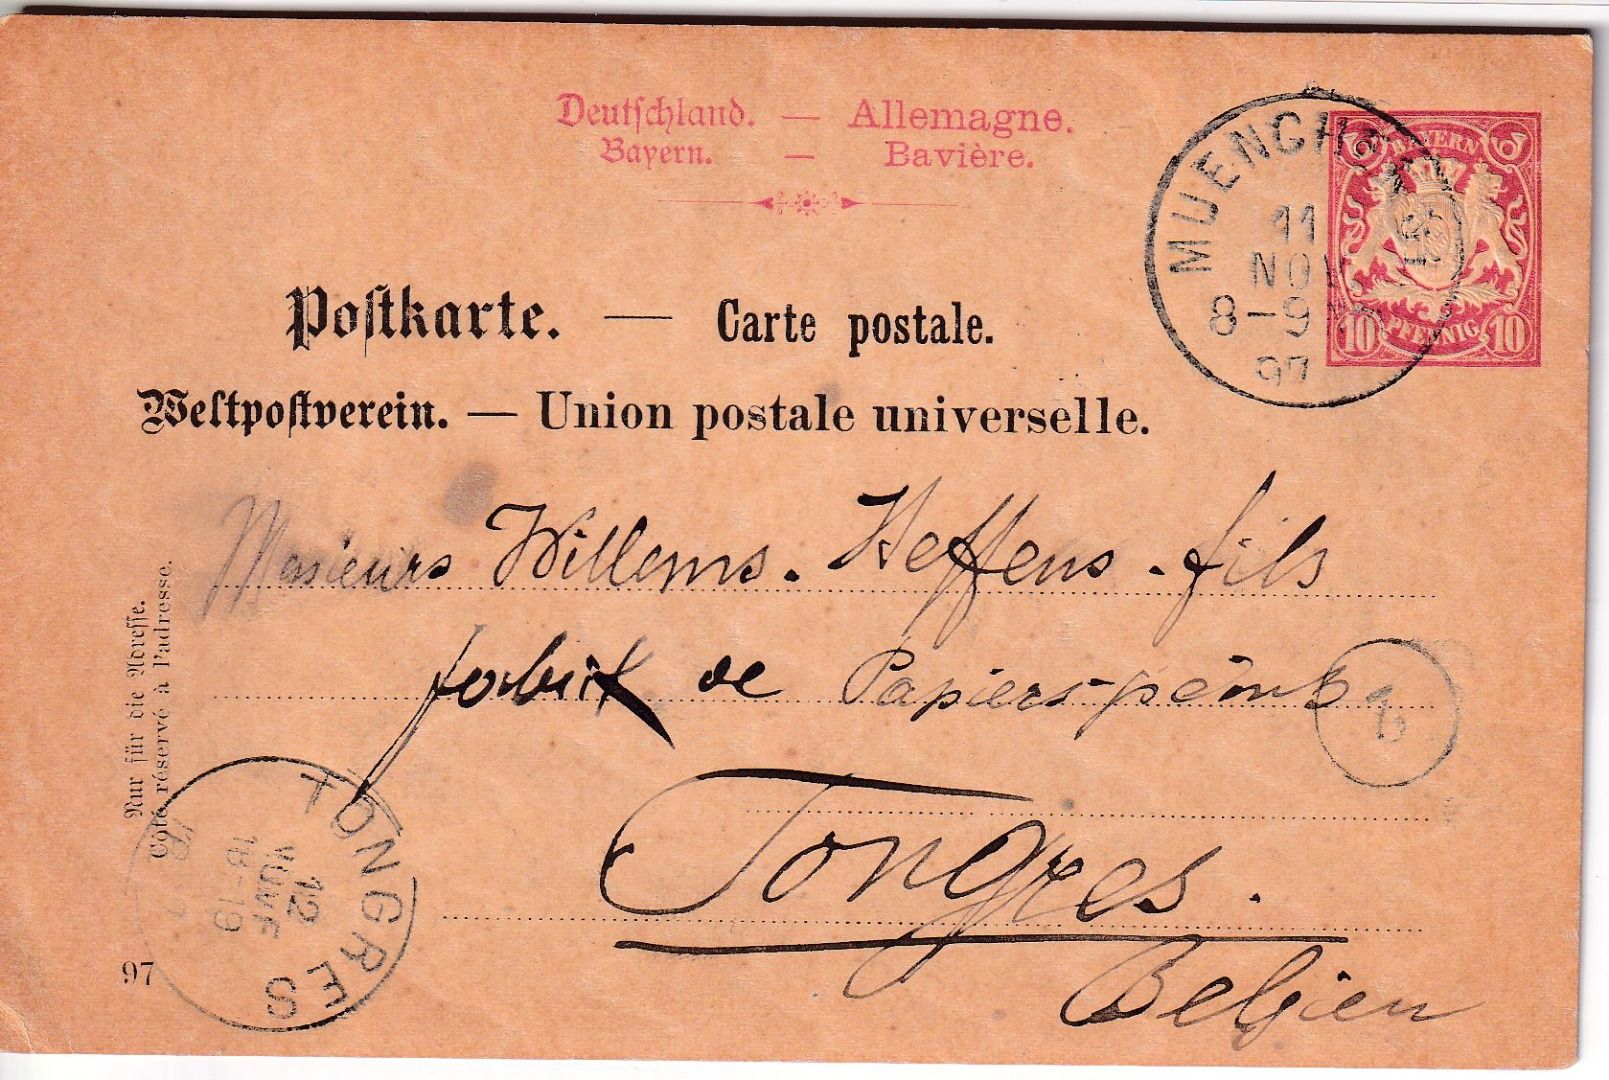 Deutschland. — Allemagne.
Bayern. — Bavière.
MUENCHEN
11
NOV
8-9
97
BAYERN
10 PFENNIG 10
Postkarte. — Carte postale.
Weltpostverein. — Union postale universelle.
Messieurs Willems. Heffens. fils
fabrik de Papiers-peints
Tongres.
Belgien
Nur für die Adresse.
Côté réservé à l'adresse.
TONGRES
12
NOVE
18-19
97